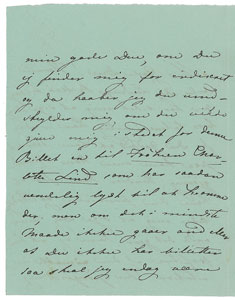 min gode Due, om Du
ej finder mig for
og da haaber jeg du und-
skylder mig, om du vilde
give mig i Stedet for denne
Billet en til Frøken Char-
lotte Lind som har saadan
lyst til at komme
der, men om det i mindste
Maade ikke gaaer an eller
at du ikke har billetter
saa skal jeg endog være